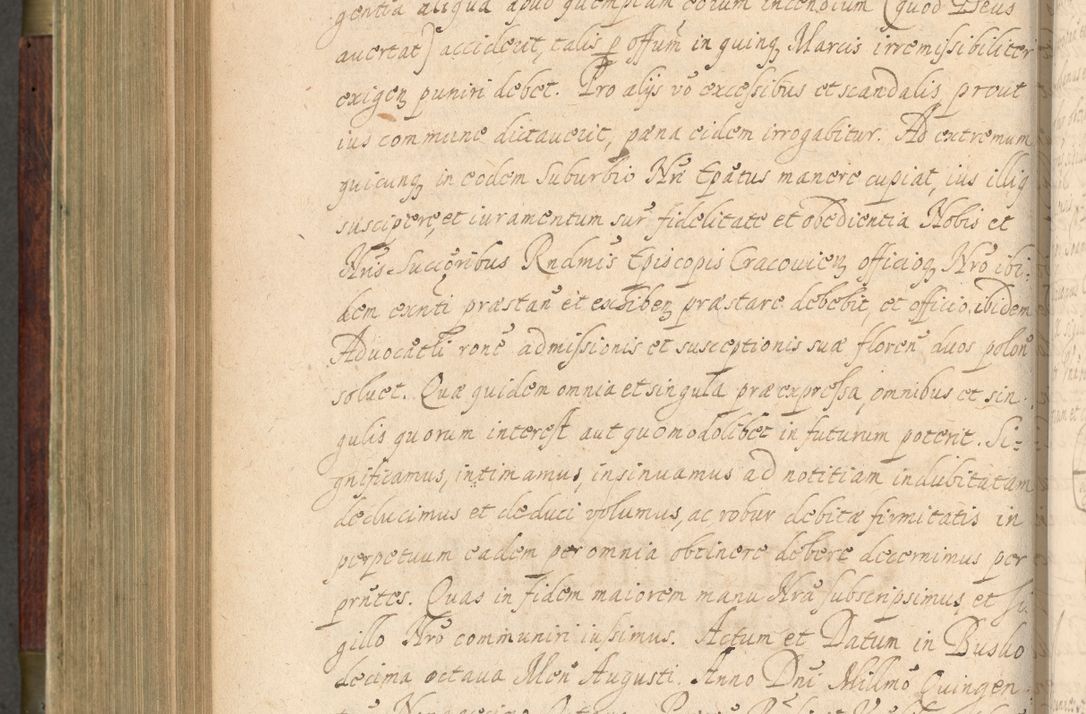 gentia aliqua apud quempiam eorum incendium (quod Deus
auertat) acciderit, talis p offum̃ in quinq, Marcis irremissibiliter
exigen, puniri debet. Pro alijs vo excessibus et scandalis, prout
ius commune dictauerit, pæna eidem irrogabitur. Ad extremum
quicunq, in eodem Suburbio Nr̃i Ep̃atus manere cupiat, ius illiq
suscipere, et iuramentum sup fidelitate et obedientia Nobis et
Nr̃is Succ̃oribus Rndmis Episcopis Cracouien, officioq, Nr̃o ibi-
dem exn̄ti præstan et exhiben, præstare debebit, et officio ibidem
Aduocatli ronẽ admissionis et susceptionis suæ floren̄ duos polon̄
soluet. Quæ quidem omnia et singula præexpressa, omnibus et sin-
gulis quorum interest aut quomodolibet in futurum poterit. Si-
gnificamus, intimamus, insinuamus ad notitiam indubitatam
deducimus et deduci volumus, ac robur debitæ firmitatis in
perpetuum eadem per omnia obtinere debere decernimus per
prn̄tes. Quas in fidem maiorem manu Nr̃a subscripsimus, et si-
gillo Nr̃o communiri iussimus. Actum et Datum in Busko
decima octaua Men̄ Augusti. Anno Dn̄i Millm̄o Quingen-